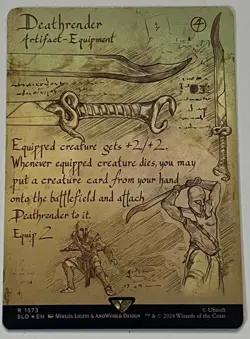 Deathrender
4
Artifact-Equipment
Equipped creature gets +2/+2.
Whenever equipped creature dies, you may
put a creature card from your hand
onto the battlefield and attach
Deathrender to it.
Equip 2
R 1573 © Ubisoft
SLD • EN Miklós Ligeti & AnoWorld Design ™ & © 2024 Wizards of the Coast